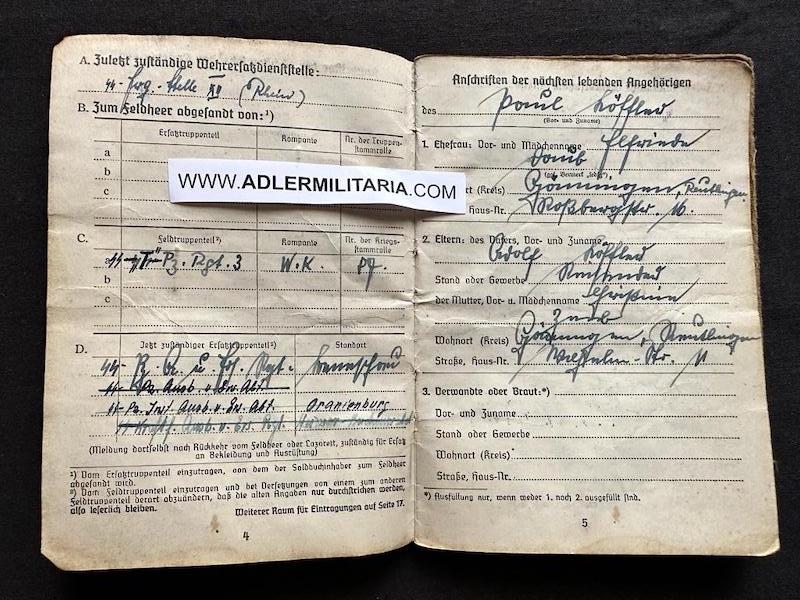 A. Zuletzt zuständige Wehrersatzdienststelle:
Erg. Stelle (Rhein)
B. Zum Feldheer abgesandt von:¹)
Ersatztruppenteil Kompanie Nr. der Truppen-
stammrolle
a
b
c
WWW.ADLERMILITARIA.COM
C. Feldtruppenteil²) Kompanie Nr. der Kriegs-
stammrolle
a Pz. Rgt. 3 W.K.
b
c
D. Jetzt zuständiger Ersatztruppenteil²) Standort
Pz. Gr. u.
Pz. Ausb. u. Ers. Abt.
Pz. Ausb. u. Ers. Abt. Oranienburg
Ausb. u. Ers. Rgt.
(Meldung dortselbst nach Rückkehr vom Feldheer oder Lazarett, zuständig für Ersatz
an Bekleidung und Ausrüstung)
¹) Vom Ersatztruppenteil einzutragen, von dem der Soldbuchinhaber zum Feldheer
abgesandt wird.
²) Vom Feldtruppenteil einzutragen und bei Versetzungen von einem zum anderen
Feldtruppenteil derart abzuändern, daß die alten Angaben nur durchstrichen werden,
also leserlich bleiben.
Weiterer Raum für Eintragungen auf Seite 17.
4
Anschriften der nächsten lebenden Angehörigen
des Paul Löffler
(Vor- und Zuname)
1. Ehefrau: Vor- und Mädchenname Elfriede
(Kreis) Gönningen, Reutlingen
Haus-Nr. Roßbergstr. 16.
2. Eltern: des Vaters, Vor- und Zuname
Adolf Löffler
Stand oder Gewerbe
der Mutter, Vor- u. Mädchenname Christine
Wohnort (Kreis) Gönningen, Reutlingen
Straße, Haus-Nr. Wilhelm-Str. 11
3. Verwandte oder Braut:*)
Vor- und Zuname
Stand oder Gewerbe
Wohnort (Kreis)
Straße, Haus-Nr.
*) Ausfüllung nur, wenn weder 1. noch 2. ausgefüllt sind.
5